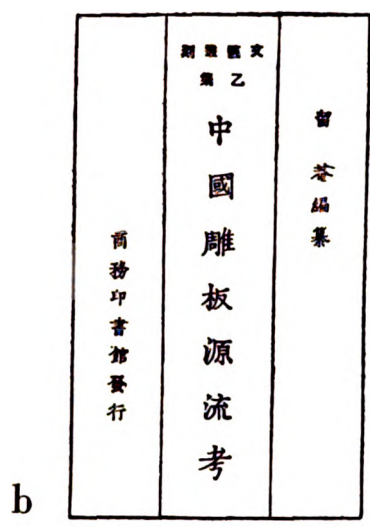 留菴編纂
文藝叢刻
乙集
中國雕板源流考
商務印書館發行
b